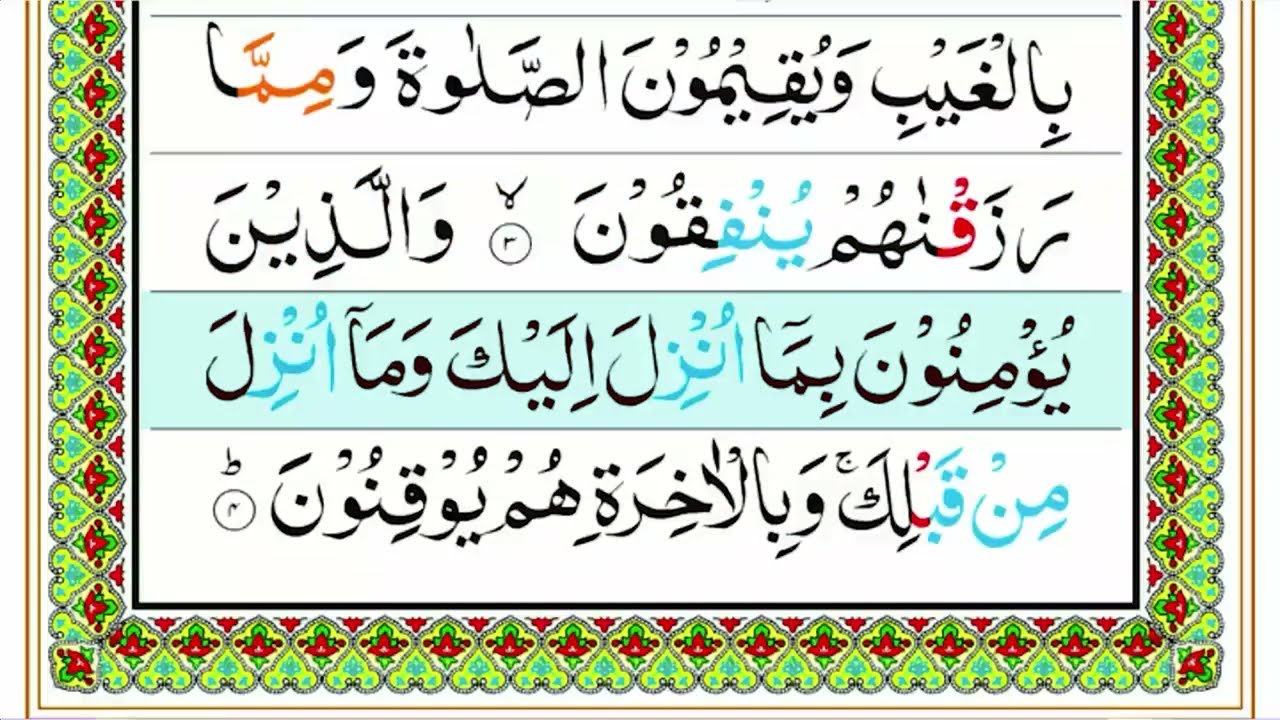 بِالْغَيْبِ وَيُقِيْمُوْنَ الصَّلٰوةَ وَمِمَّا
رَزَقْنٰهُمْ يُنْفِقُوْنَ ۙ﴿۳﴾ وَالَّذِيْنَ
يُؤْمِنُوْنَ بِمَآ اُنْزِلَ اِلَيْكَ وَمَآ اُنْزِلَ
مِنْ قَبْلِكَ ۚ وَبِالْاٰخِرَةِ هُمْ يُوْقِنُوْنَ ؕ﴿۴﴾